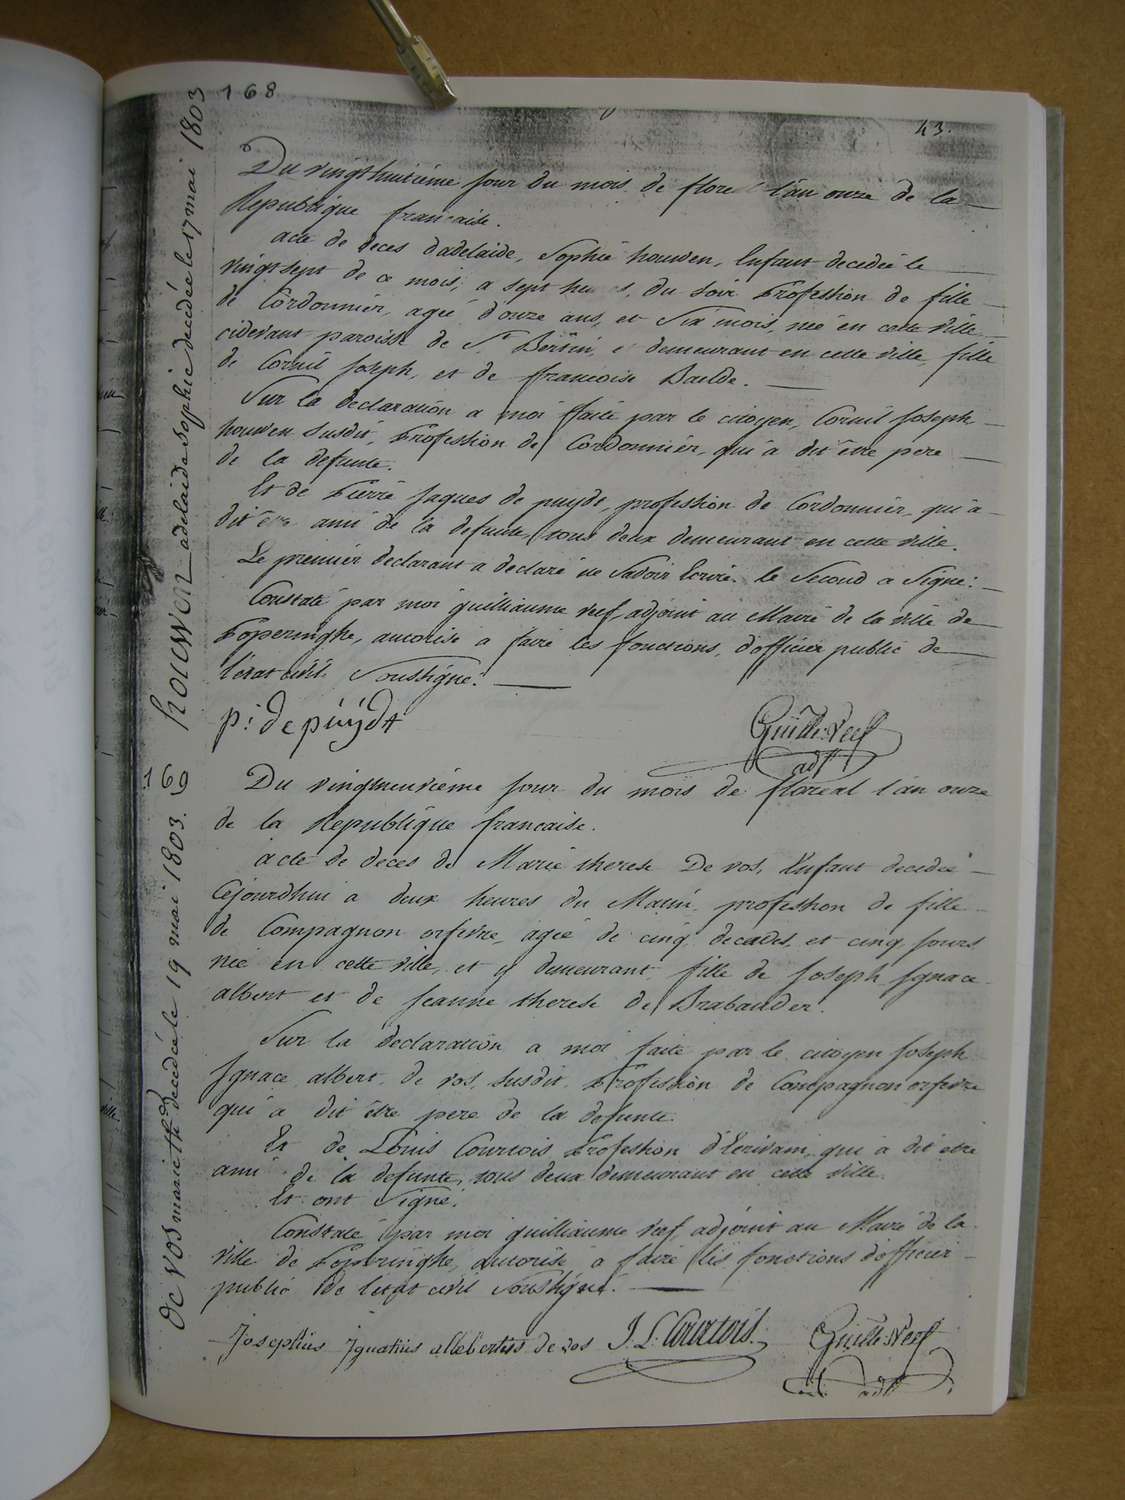 168
43.
houwen adelaide Sophie decedée le 17 mai 1803
Du vingthuitième jour du mois de flore l'an onze de la
Republique francaise.
acte de deces d'adelaide, Sophie houwen, Enfant decedée le
vingt sept de ce mois, a sept heures, du soir Profession de fille
de Cordonnier, agée d'onze ans, et Six mois, née en cette ville
cidevant paroisse de St Bertin, et demeurant en cette ville, fille
de Cornil Joseph, et de francoise Baelde.
Sur la declaration a moi faite par le citoyen, Cornil Joseph
houwen Susdit, Profession de Cordonnier, qui a dit être pere
de la defunte.
Et de Pierre Jaques de puydt, profession de Cordonnier, qui a
dit être ami de la defunte, tous deux demeurant en cette ville.
Le premier declarant a declaré ne Savoir Ecrire. le Second a Signé:
Constaté par moi guilliaume Neef, adjoint au Maire de la ville de
Poperinghe, autorisé a faire les fonctions, d'officier public de
l'etat civil Soussigné.
p: de püÿdt
Guille: Neef
adt
169
de vos marie th decedée le 19 mai 1803.
Du vingtneuvième jour du mois de floreal l'an onze
de la Republique francaise.
acte de deces de Marie therese De vos, Enfant decedée
Cejourdhui a deux heures du Matin, profession de fille
de Compagnon orfevre, agée de cinq decades et cinq jours
née en cette ville, et y demeurant, fille de Joseph Ignace
albert et de Jeanne therese de Brabander.
Sur la declaration a moi faite par le citoyen Joseph
Ignace, albert, de vos, susdit, Profession de Compagnon orfevre
qui a dit être pere de la defunte.
Et de Louis Courtois Profession d'Ecrivain, qui a dit etre
ami de la defunte, tous deux demeurant en cette ville.
Et ont Signé.
Constaté par moi guilliaume neef, adjoint au Maire de la
ville de Poperinghe, autorisé a faire les fonctions d'officier
public de l'etat civil Soussigné.
Josephus Ignatius allebertus de vos J. L: Courtois. Guille: Neef
adt